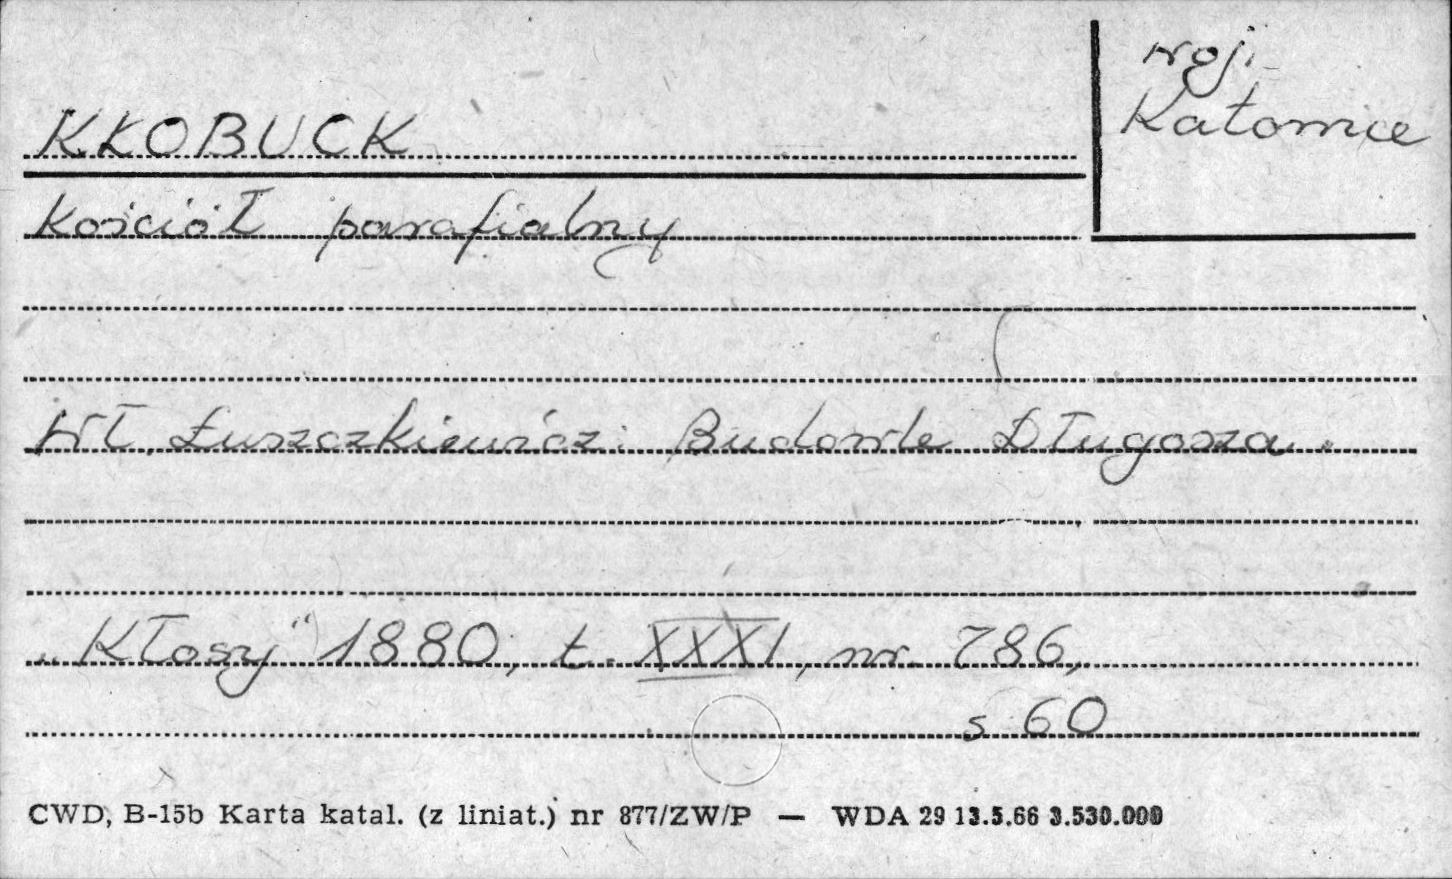 woj.
Katowice
KŁOBUCK
Kościół parafialny
Wł. Łuszczkiewicz: Budowle Długosza.
„Kłosy" 1880, t. XXXI, nr. 786,
s 60
CWD, B-15b Karta katal. (z liniat.) nr 877/ZW/P — WDA 29 13.5.66 3.530.000